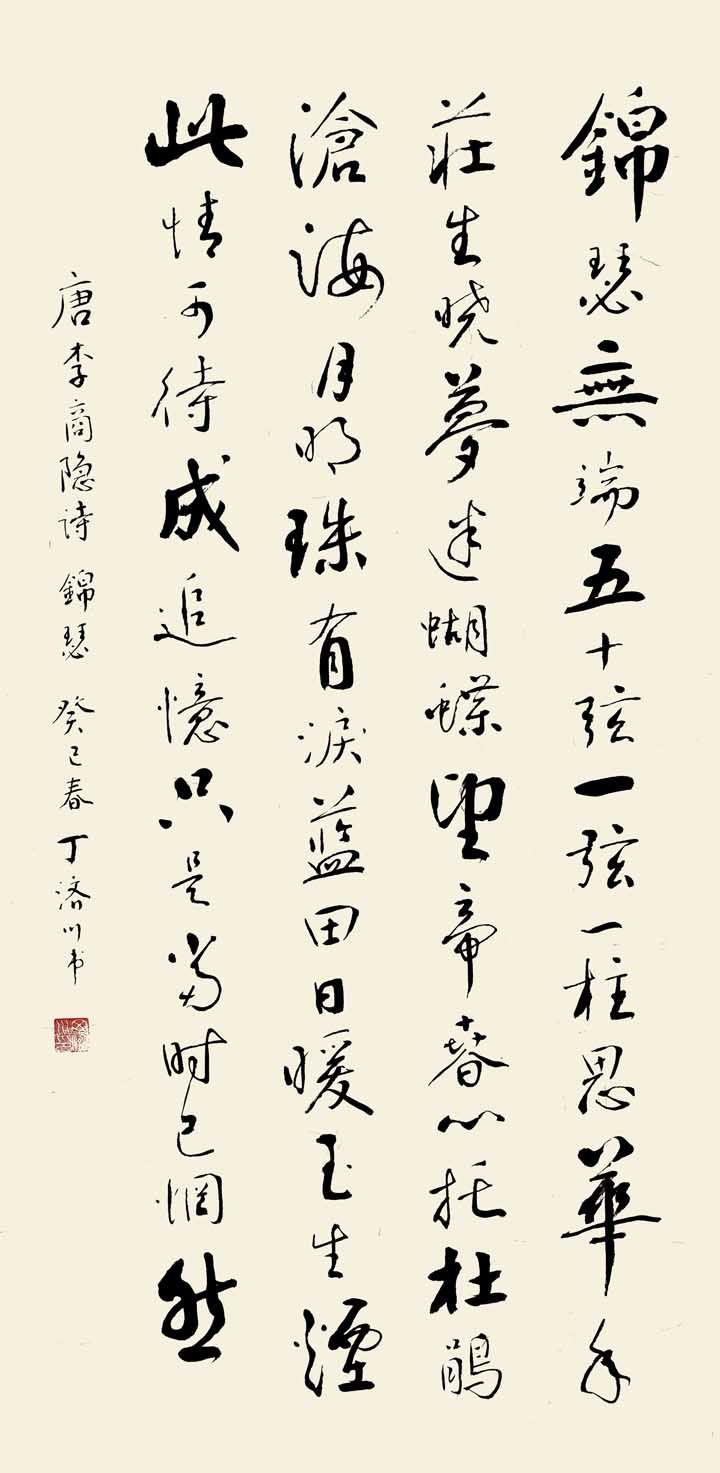 錦瑟無端五十弦一弦一柱思華年
莊生晓夢迷蝴蝶望帝春心托杜鹃
滄海月明珠有淚蓝田日暖玉生煙
此情可待成追憶只是当时已惘然
唐李商隐诗 錦瑟 癸巳春丁济川书